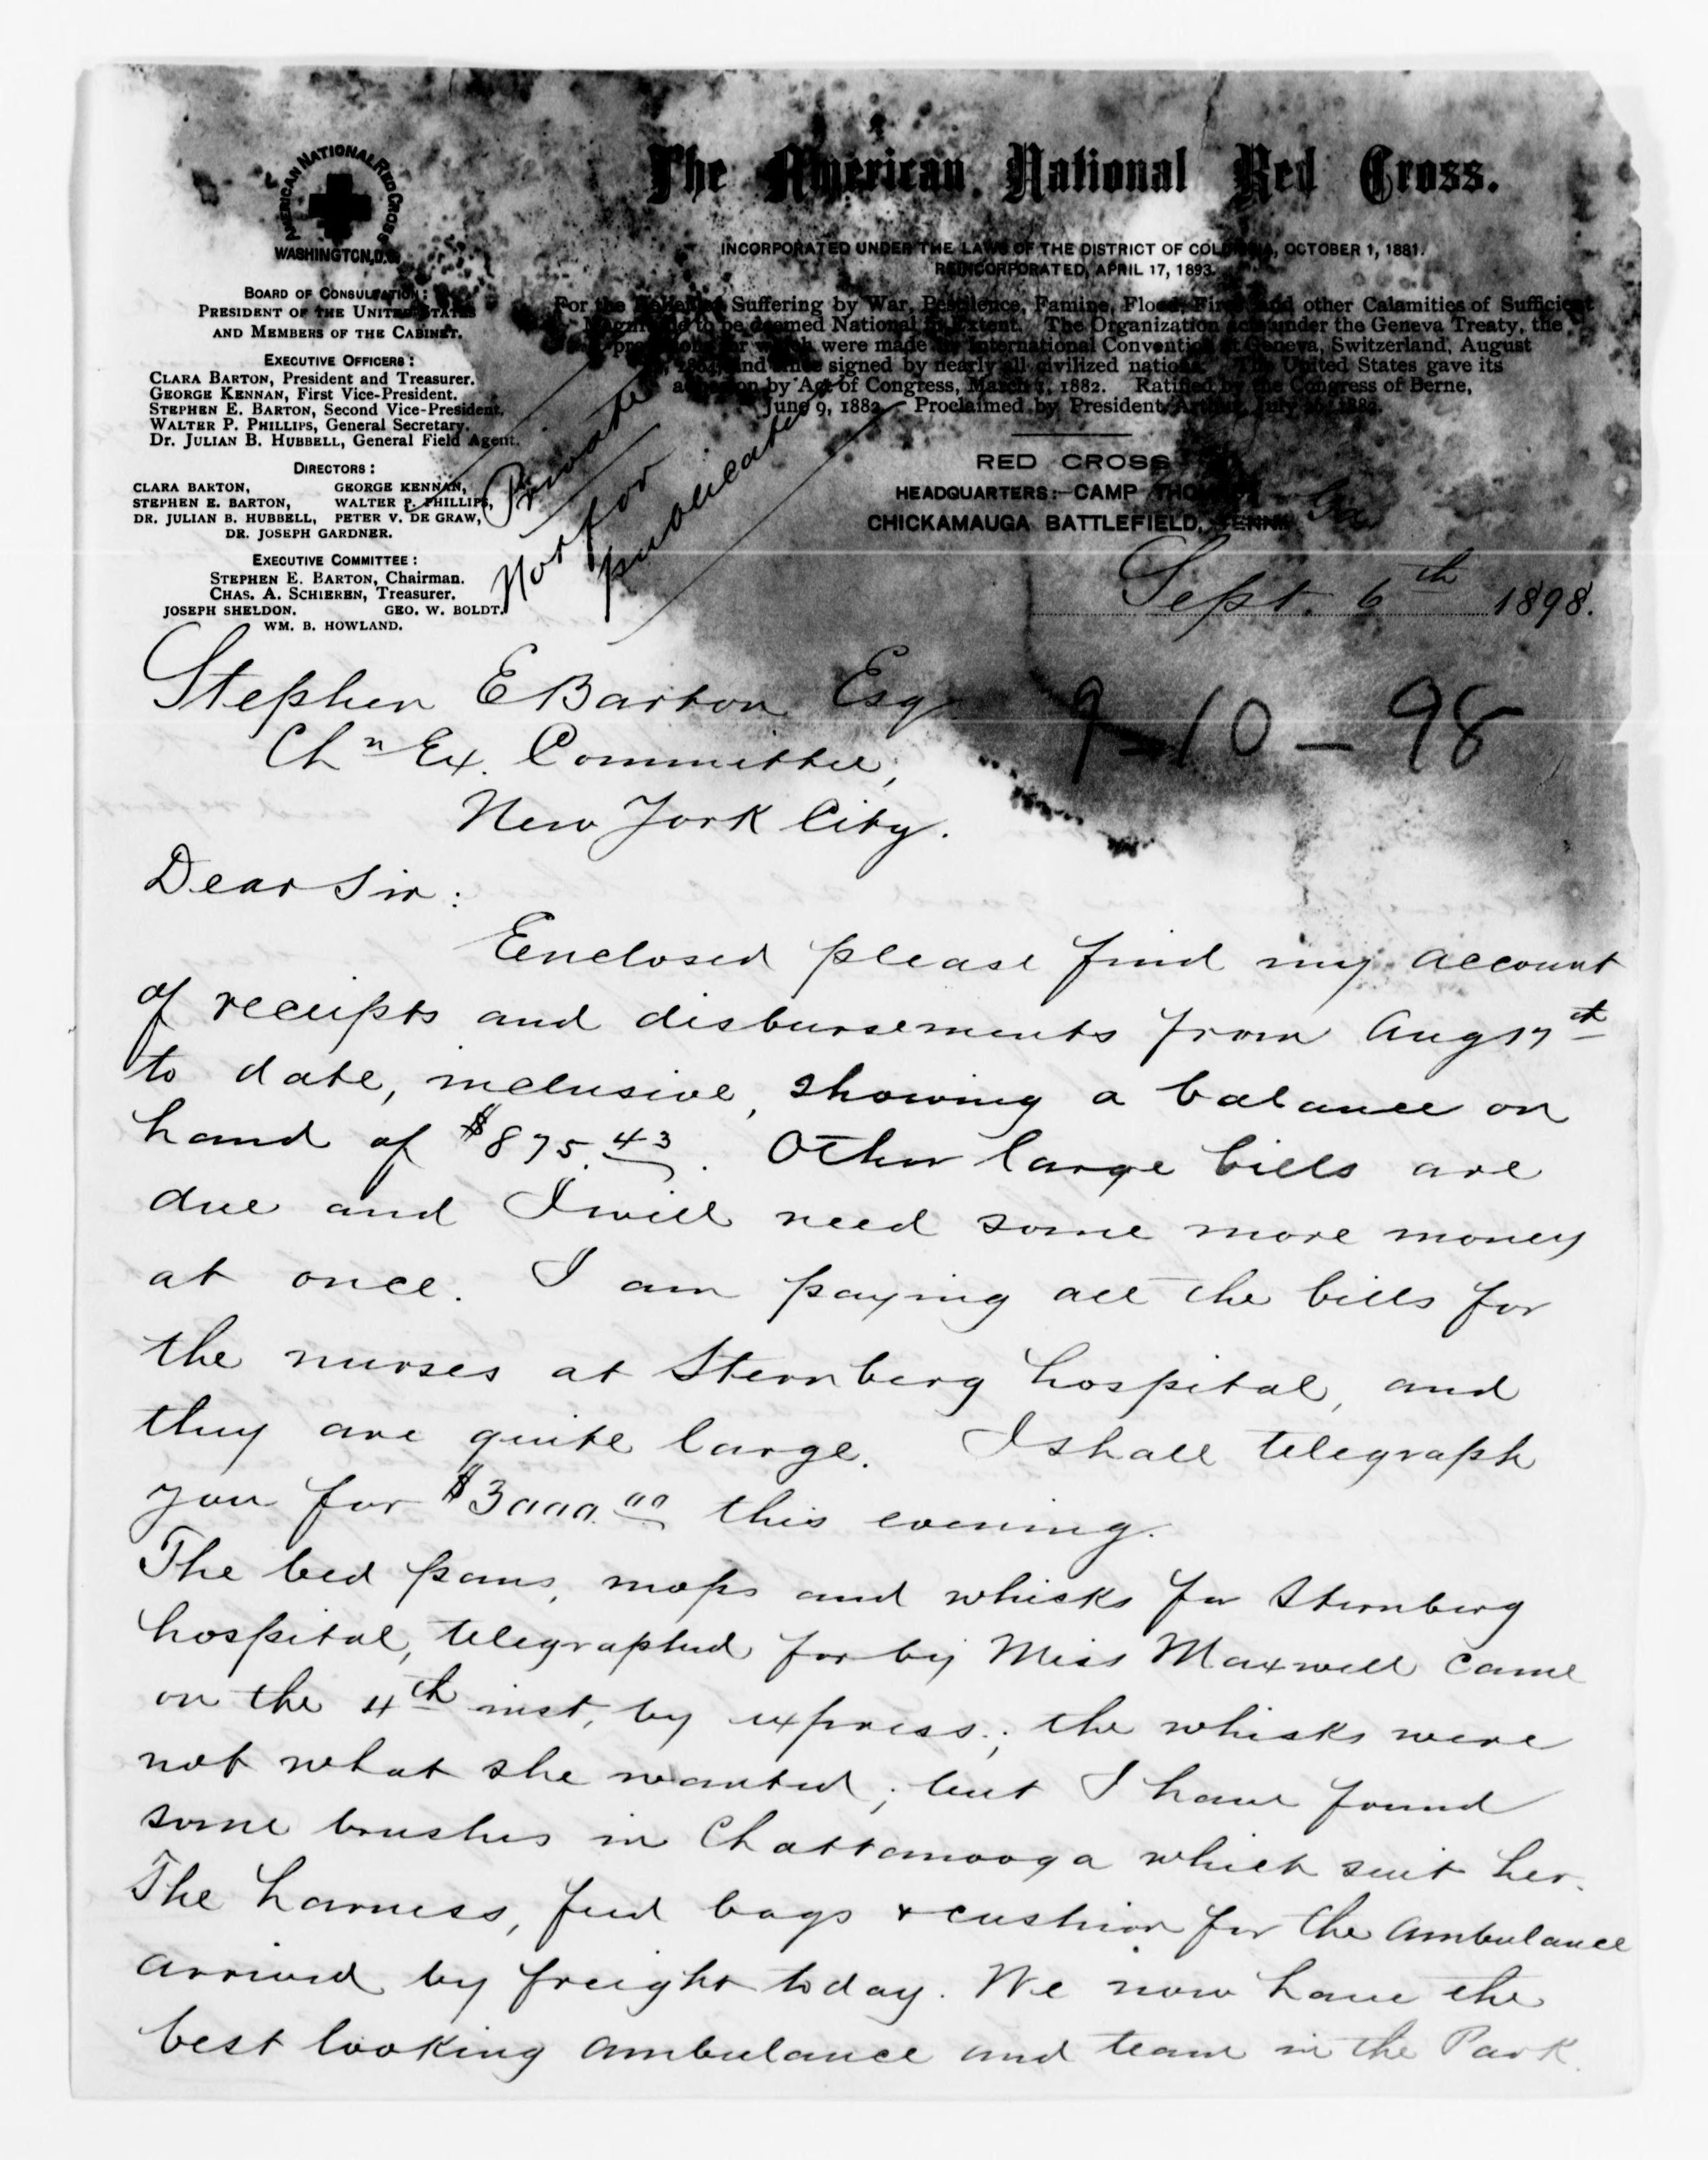 AMERICAN NATIONAL RED CROSS
WASHINGTON, D.C.
The American National Red Cross.
INCORPORATED UNDER THE LAWS OF THE DISTRICT OF COLUMBIA, OCTOBER 1, 1881.
REINCORPORATED, APRIL 17, 1893.
For the Relief of Suffering by War, Pestilence, Famine, Flood, Fires and other Calamities of Sufficient
Magnitude to be deemed National in Extent. The Organization acts under the Geneva Treaty, the
provisions for which were made by International Convention at Geneva, Switzerland, August
1864, and since signed by nearly all civilized nations. The United States gave its
adhesion by Act of Congress, March 1, 1882. Ratified by the Congress of Berne,
June 9, 1882. Proclaimed by President Arthur, July 26, 1882.
BOARD OF CONSULTATION:
PRESIDENT OF THE UNITED STATES
AND MEMBERS OF THE CABINET.
EXECUTIVE OFFICERS:
CLARA BARTON, President and Treasurer.
GEORGE KENNAN, First Vice-President.
STEPHEN E. BARTON, Second Vice-President.
WALTER P. PHILLIPS, General Secretary.
Dr. JULIAN B. HUBBELL, General Field Agent.
DIRECTORS:
CLARA BARTON, GEORGE KENNAN,
STEPHEN E. BARTON, WALTER P. PHILLIPS,
DR. JULIAN B. HUBBELL, PETER V. DE GRAW,
DR. JOSEPH GARDNER.
EXECUTIVE COMMITTEE:
STEPHEN E. BARTON, Chairman.
CHAS. A. SCHIEREN, Treasurer.
JOSEPH SHELDON. GEO. W. BOLDT.
WM. B. HOWLAND.
Private
Not for
publication
RED CROSS
HEADQUARTERS:—CAMP THOMAS
CHICKAMAUGA BATTLEFIELD, TENN. Ga
Sept. 6th 1898.
9-10-98
Stephen E Barton Esq
Chn Ex. Committee,
New York City.
Dear Sir:
Enclosed please find my account
of receipts and disbursements from Aug 17th
to date, inclusive, showing a balance on
hand of $875.43. Other large bills are
due and I will need some more money
at once. I am paying all the bills for
the nurses at Sternberg hospital, and
they are quite large. I shall telegraph
you for $3000.00 this evening.
The bed pans, mops and whisks for Sternberg
hospital, telegraphed for by Miss Maxwell came
on the 4th inst, by express; the whisks were
not what she wanted; but I have found
some brushes in Chattanooga which suit her.
The harness, feed bags & cushion for the ambulance
arrived by freight today. We now have the
best looking ambulance and team in the Park.